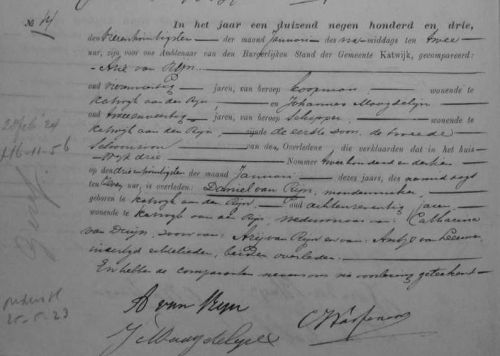 No 14
In het jaar een duizend negen honderd en drie,
den vierentwintigsten der maand Januari des na-middags ten twee
uur, zijn voor ons Ambtenaar van den Burgerlijken Stand der Gemeente Katwijk, gecompareerd:
Arie van Rijn
oud jaren, van beroep koopman wonende te
Katwijk aan den Rijn, en Johannes Maagdelijn
oud jaren, van beroep Schipper wonende te
Katwijk aan den Rijn, zijnde de eerste zoon, de tweede
Schoonzoon van den Overledene die verklaarden dat in het huis
Wijk drie Nommer twee honderd en dertien
op den drieentwintigsten der maand Januari dezes jaars, des namiddags
ten uur, is overleden: Daniel van Rijn,
geboren te Katwijk aan den Rijn, oud achtenzeventig jaren
wonende te Katwijk aan den Rijn, weduwnaar van Catharina
van Duijn, zoon van Arij van Rijn en van Antje van Leeuwen
echtelieden, beiden overleden.
En hebben de comparanten nevens ons na voorlezing geteekend
A van Rijn
J Maagdelijn